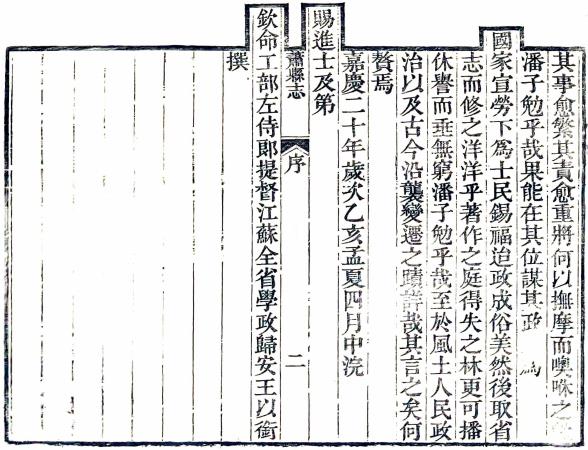 其事愈繁其責愈重將何以撫摩而噢咻之
潘子勉乎哉果能在其位謀其政 為
國家宣勞下爲士民錫福治政成俗美然後取省
志而修之洋洋乎著作之庭得失之林更可播
休譽而垂無窮潘子勉乎哉至於風土人民政
治以及古今沿襲變遷之蹟詳哉其言之矣何
贅焉
嘉慶二十年歲次乙亥孟夏四月中浣
賜進士及第
蕭縣志 序 二
欽命工部左侍郎提督江蘇全省學政歸安王以銜
撰